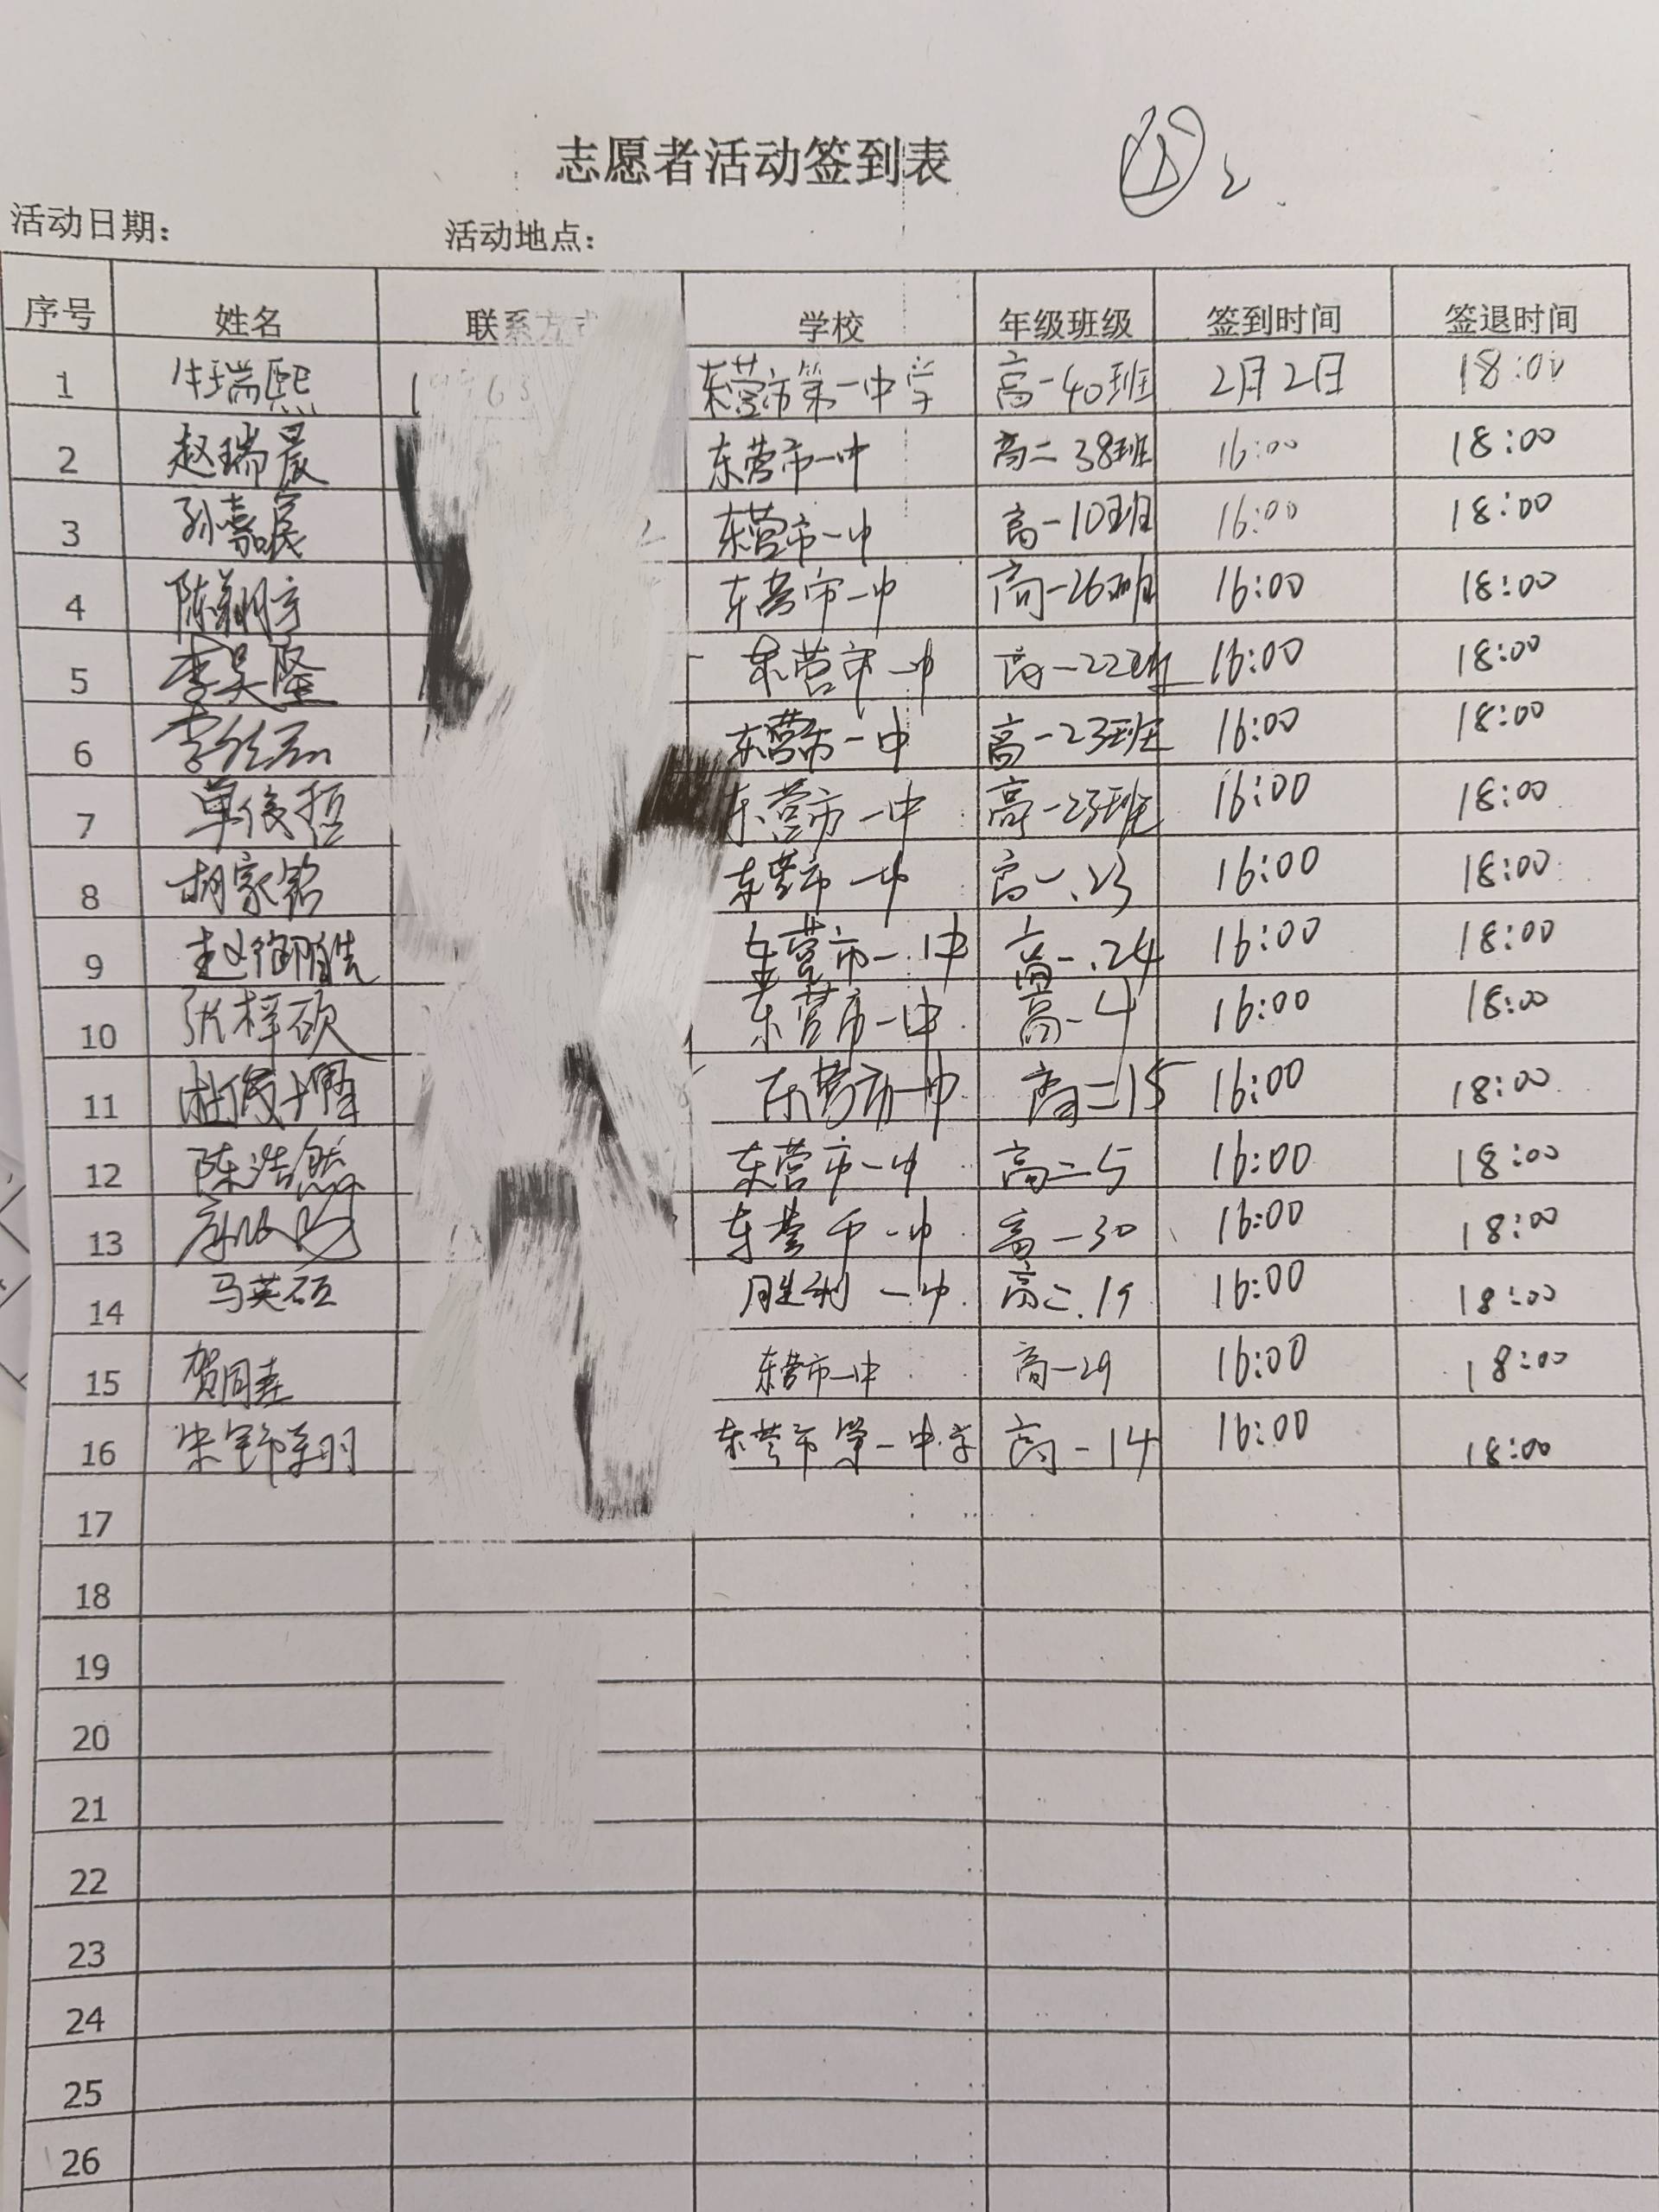 志愿者活动签到表
活动日期: 活动地点:
序号 姓名 联系方式 学校 年级班级 签到时间 签退时间
1 牛瑞熙 东营市第一中学 高一40班 2月2日 18:00
2 赵瑞晨 东营市一中 高二38班 16:00 18:00
3 孙嘉晨 东营市一中 高一10班 16:00 18:00
4 东营市一中 高一26班 16:00 18:00
5 李昊隆 东营市一中 高一22班 16:00 18:00
6 东营市一中 高一23班 16:00 18:00
7 单俊哲 东营市一中 高一23班 16:00 18:00
8 胡家铭 东营市一中 高一.23 16:00 18:00
9 东营市一中 高一.24 16:00 18:00
10 张梓硕 东营市一中 高一4 16:00 18:00
11 东营市一中 高二15 16:00 18:00
12 陈浩然 东营市一中 高二5 16:00 18:00
13 东营市一中 高一30 16:00 18:00
14 马英硕 胜利一中 高二.19 16:00 18:00
15 东营市一中 高一29 16:00 18:00
16 东营市第一中学 高一14 16:00 18:00
17
18
19
20
21
22
23
24
25
26